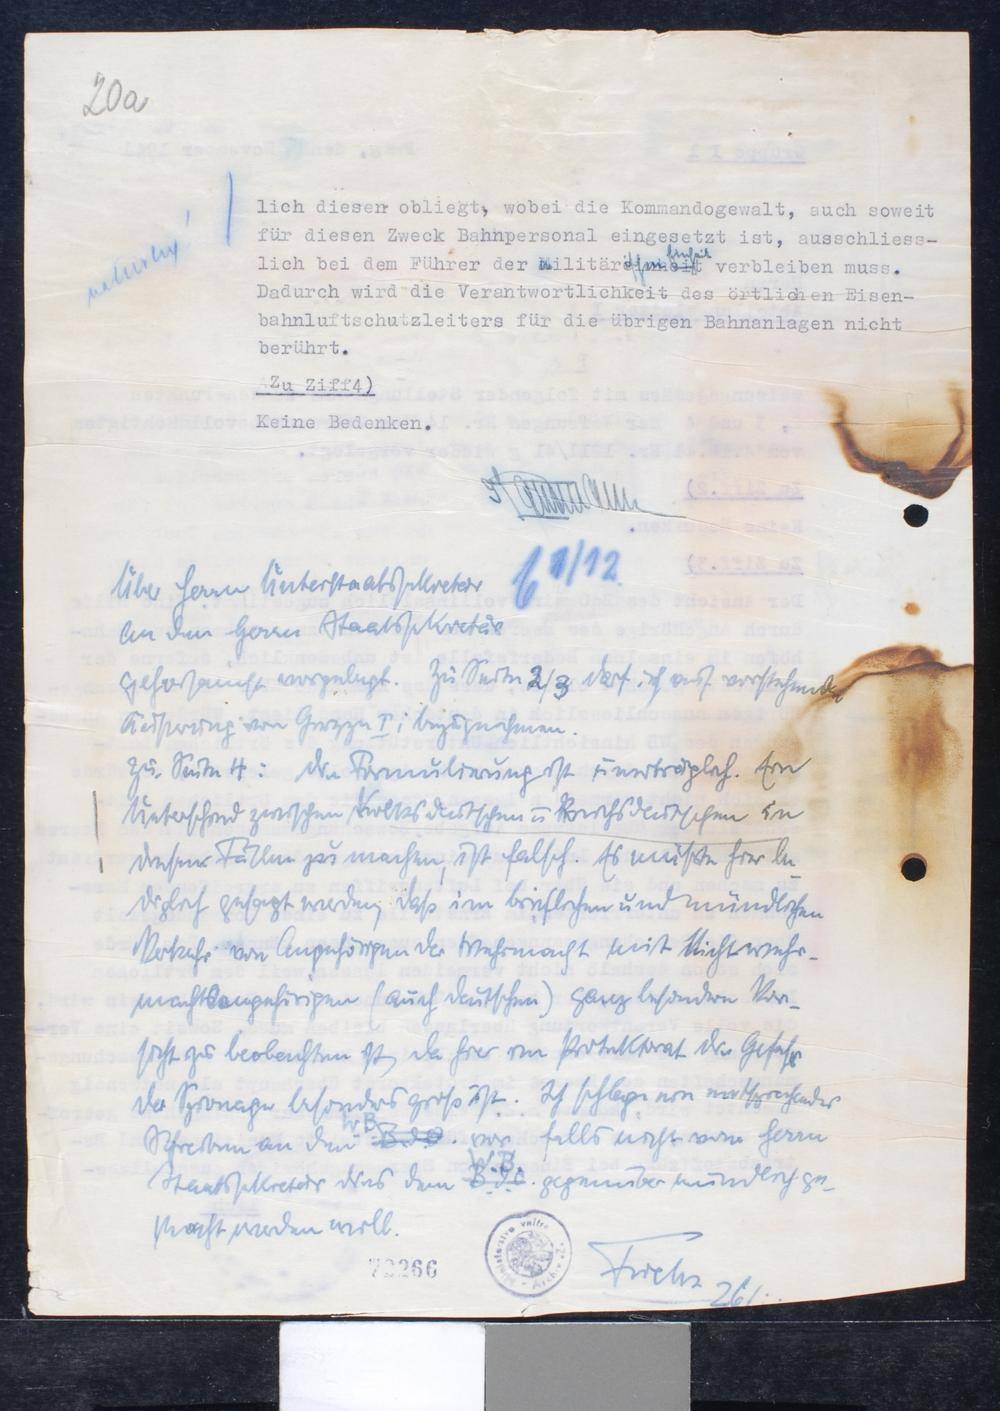 20a
lich diesen obliegt, wobei die Kommandogewalt, auch soweit
für diesen Zweck Bahnpersonal eingesetzt ist, ausschliess-
lich bei dem Führer der Militär verbleiben muss.
Dadurch wird die Verantwortlichkeit des örtlichen Eisen-
bahnluftschutzleiters für die übrigen Bahnanlagen nicht
berührt.
Zu Ziff4)
Keine Bedenken.
1/12
Über Herrn Unterstaatssekretär
an den Herrn Staatssekretär
gehorsamst vorgelegt. Zu Seite 2/3 darf ich auf vorstehende
Äusserung von Gruppe I 1 bezugnehmen.
Zu Seite 4: Die Formulierung ist unerträglich. Ein
Unterschied zwischen Volksdeutschen u Reichsdeutschen in
diesen Fällen zu machen, ist falsch. Es müsste hier le-
diglich gesagt werden, dass im brieflichen und mündlichen
Verkehr von Angehörigen der Wehrmacht mit Nichtwehr-
machtsangehörigen (auch Deutschen) ganz besondere Vor-
sicht zu beobachten ist, da hier im Protektorat die Gefahr
der Spionage besonders gross ist. Ich schlage ein entsprechendes
Schreiben an den W B B.d.O. vor falls nicht vom Herrn
Staatssekretär dies dem W.B. B.d.O. gegenüber mündlich ge-
macht werden will.
72266